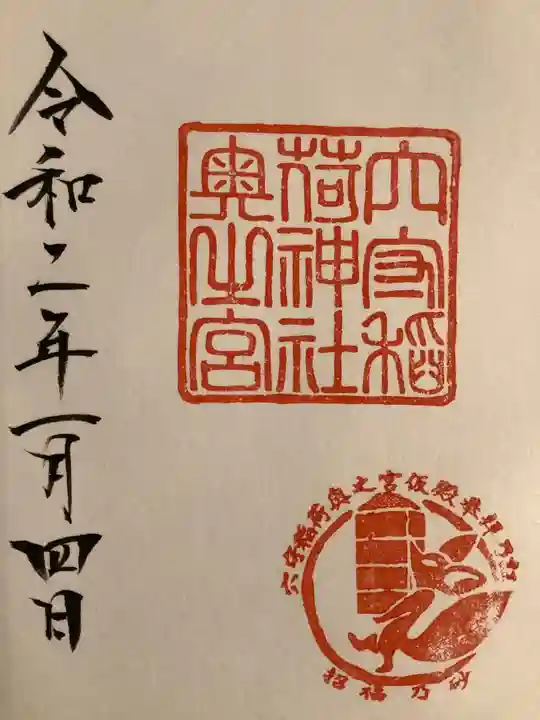 穴守稲
荷神社
奥之宮
穴守稲荷奥之宮仮殿奉拝乃証
招福乃砂
令和二年一月四日